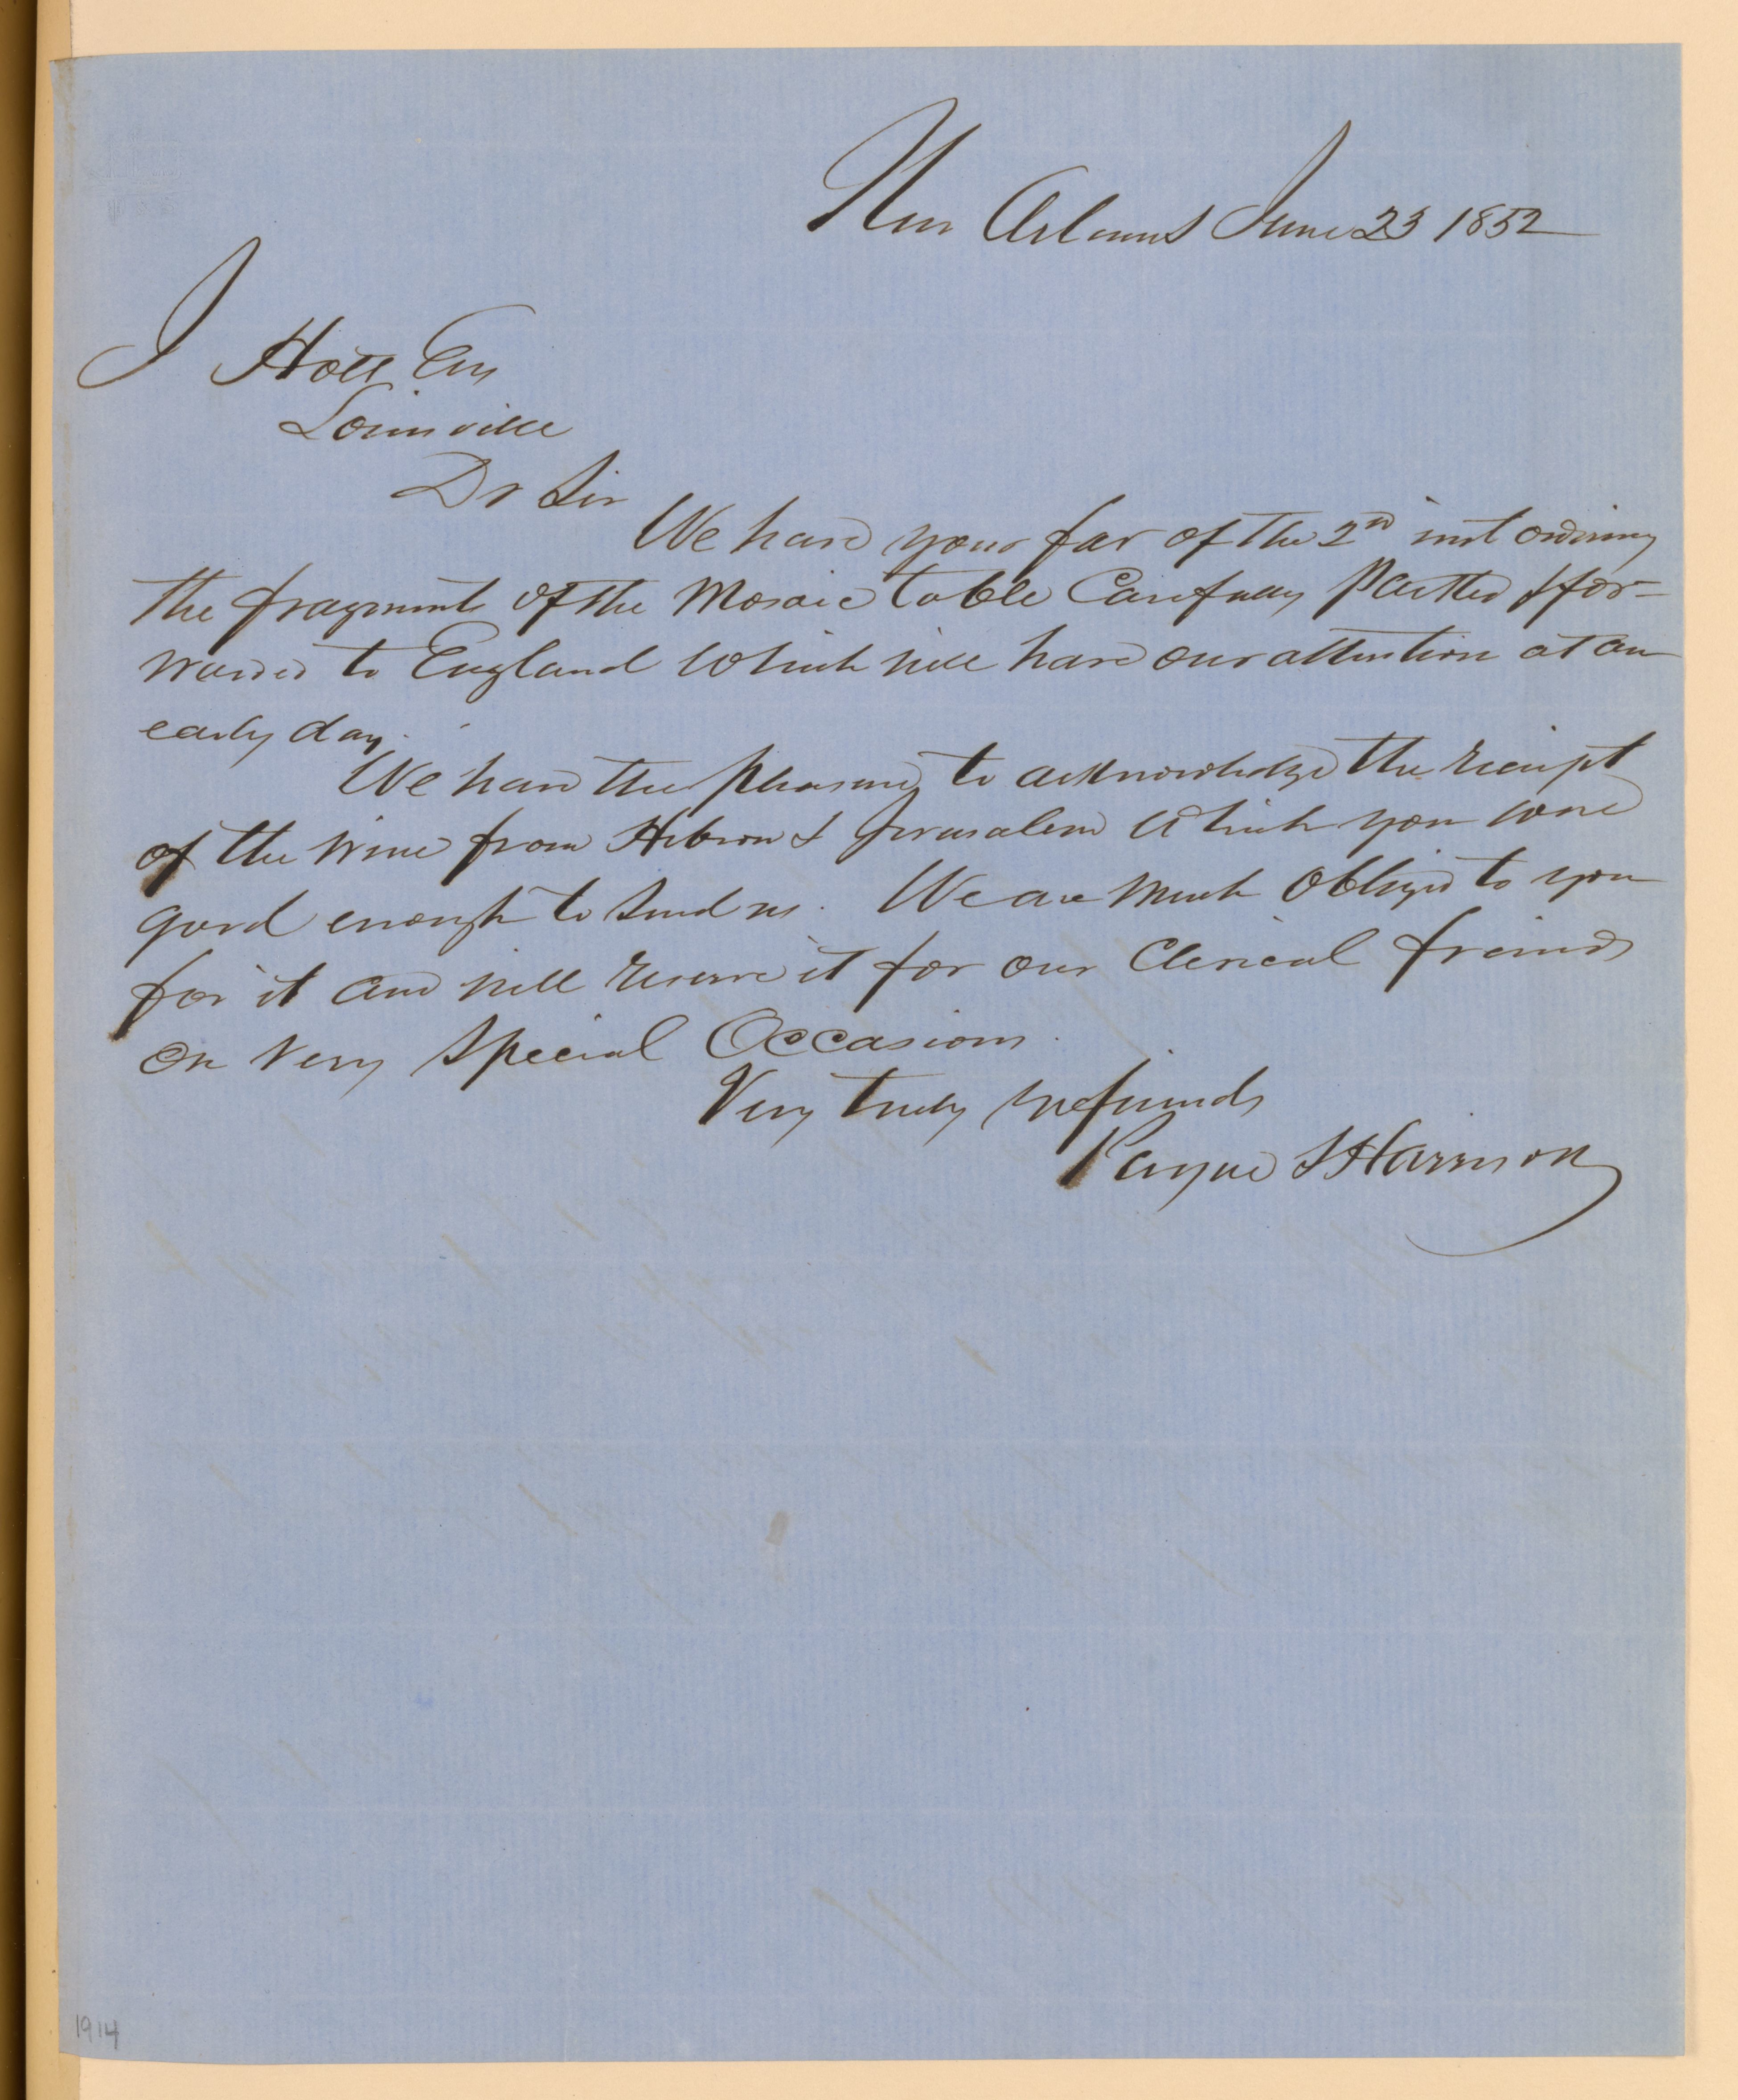 New Orleans June 23 1852
J Holt Esq
Louisville
Dr Sir
We have your fav of the 2nd inst ordering
the fragments of the Mosaic table Carefully Packed & for=
warded to England which will have our attention at an
early day.
We have the pleasure to acknowledge the receipt
of the wine from Hebron & Jerusalem which you were
good enough to send us. We are Much obliged to you
for it and will reserve it for our Clerical friends
on very special Occasions.
Very truly yr friends
Payne & Harrison
1914